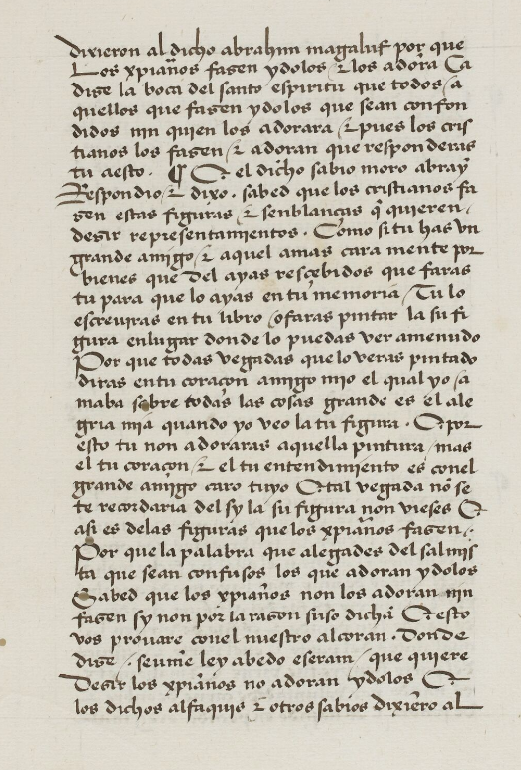 dixieron al dicho abrahim magaluf por que
Los xpianos fazen ydolos & los adora Ca
dize la boca del santo espiritu que todos / a
quellos que fazen ydolos que sean confon
didos nin quien los adorara & pues los cris
tianos los fazen / & adoran que responderas
tu aesto . ¶ E el dicho sabio moro abray
Respondio & dixo . sabed que los cristianos fa
zen estas figuras & senblanças q̃ quieren /
dezir representamientos . Como si tu has vn
grande amigo & aquel amas cara mente por
bienes que del ayas rescebidos que faras
tu para que lo ayas en tu memoria / Tu lo
escreuiras en tu libro / ofaras pintar la su fi
gura enlugar donde lo puedas ver amenudo
Por que todas vegadas que lo veras pintado
diras entu coraçon amigo mio el qual yo / a
maba sobre todas las cosas grande es el ale
gria mia quando yo veo la tu figura . E por
esto tu non adoraras aquella pintura / mas
el tu coraçon / & el tu entendimiento es conel
grande amigo caro tuyo E tal vegada nõ se
te recordaria del sy la su figura non vieses E
asi es delas figuras que los xpianos fazen /.
Por que la palabra que alegades del salmis
ta que sean confusos los que adoran ydolos
Sabed que los xpianos non los adoran nin
fazen sy non por la razon suso dicha E esto
vos prouare conel nuestro alcoran . Donde
dize /. seume ley abedo eseram / que quiere
Dezir los xpianos no adoran ydolos E
los dichos alfaquis & otros sabios dixiero al